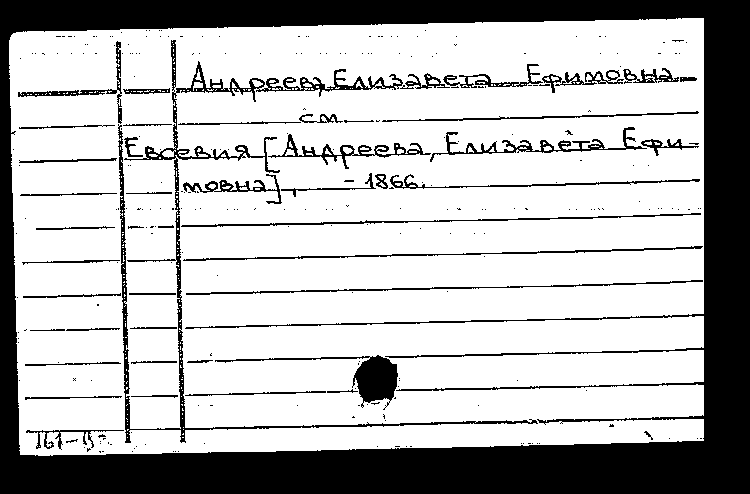 Андреева, Елизавета Ефимовна
см.
Евсевия [Андреева, Елизавета Ефи-
мовна], - 1866.